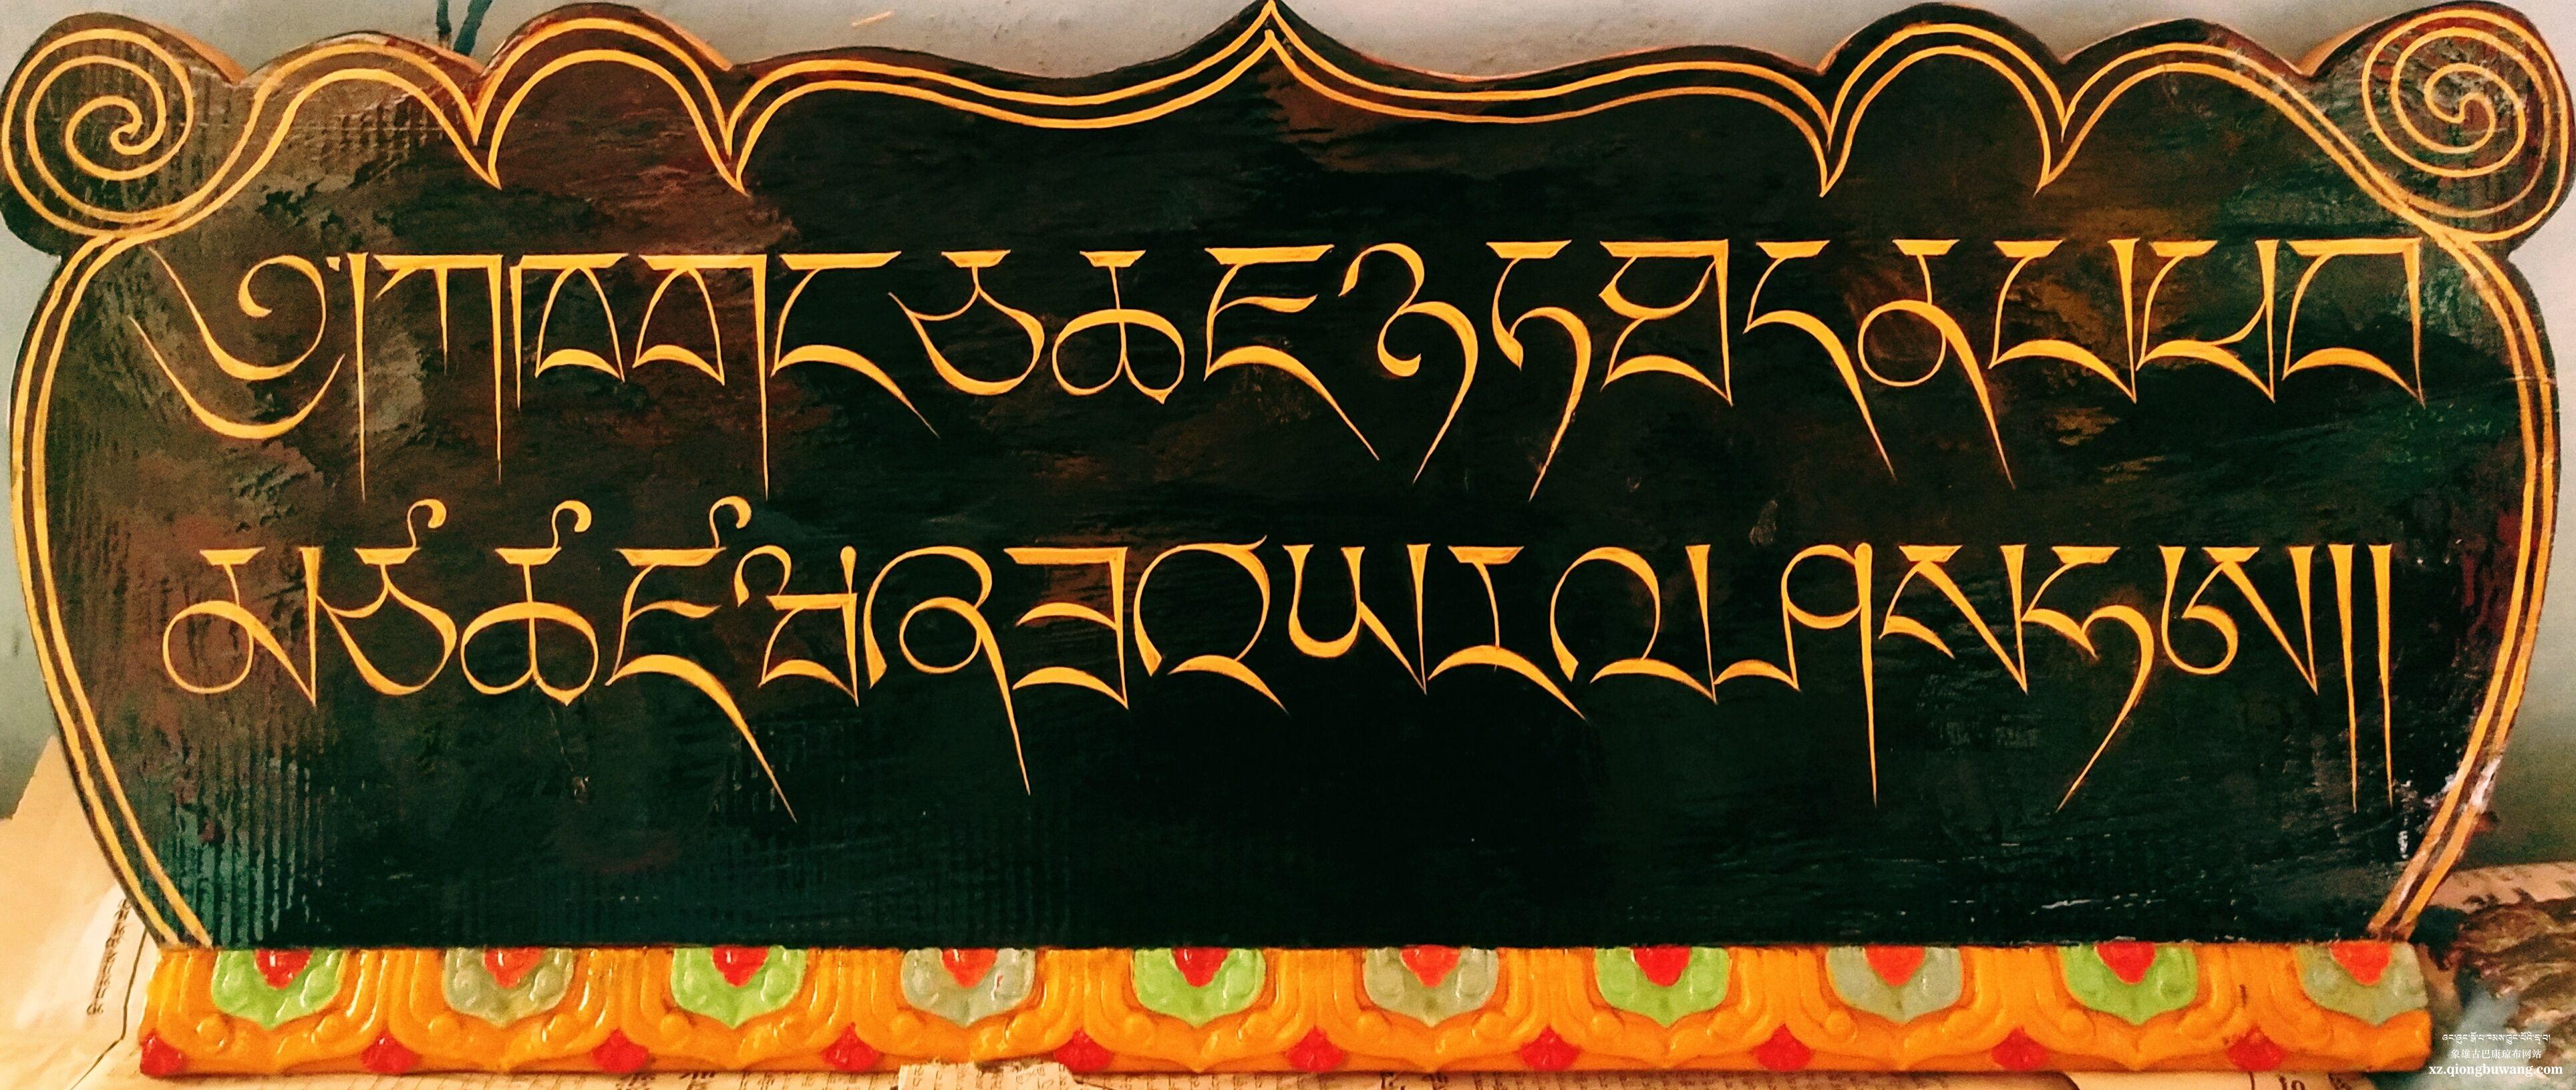 ༄༅།ཀཁགངཅཆཇཉཏཐདནཔཕབ
མཙཚཛཝཞཟའཡརལཤསཧཨ།།
象雄古巴康琼布网站
xz.qiongbuwang.com